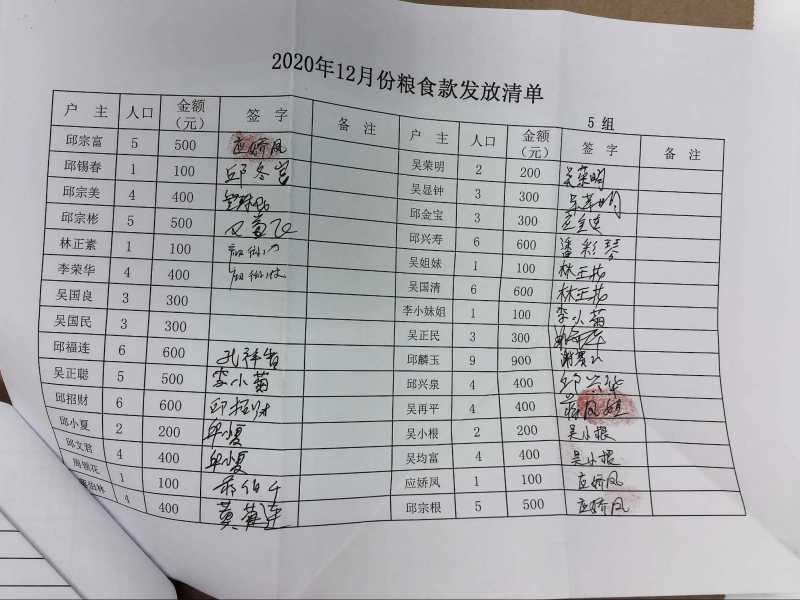 2020年12月份粮食款发放清单
5 组
户 主 人口 金额（元） 签 字 备 注
邱宗富 5 500 应娇凤
邱锡春 1 100
邱宗美 4 400
邱宗彬 5 500
林正素 1 100
李荣华 4 400
吴国良 3 300
吴国民 3 300
邱福连 6 600
吴正聪 5 500 李小菊
邱招财 6 600 邱招财
邱小夏 2 200 邱小夏
邱文君 4 400 邱小夏
花 1 100
伯林 4 400 黄连
户 主 人口 金额（元） 签 字 备 注
吴荣明 2 200 吴荣明
吴显钟 3 300
邱金宝 3 300
邱兴寿 6 600 潘彩琴
吴姐妹 1 100 林正
吴国清 6 600 林正
李小妹姐 1 100 李小菊
吴正民 3 300
邱麟玉 9 900
邱兴泉 4 400 邱兴华
吴再平 4 400
吴小根 2 200 吴小根
吴均富 4 400 吴小根
应娇凤 1 100 应娇凤
邱宗根 5 500 应娇凤